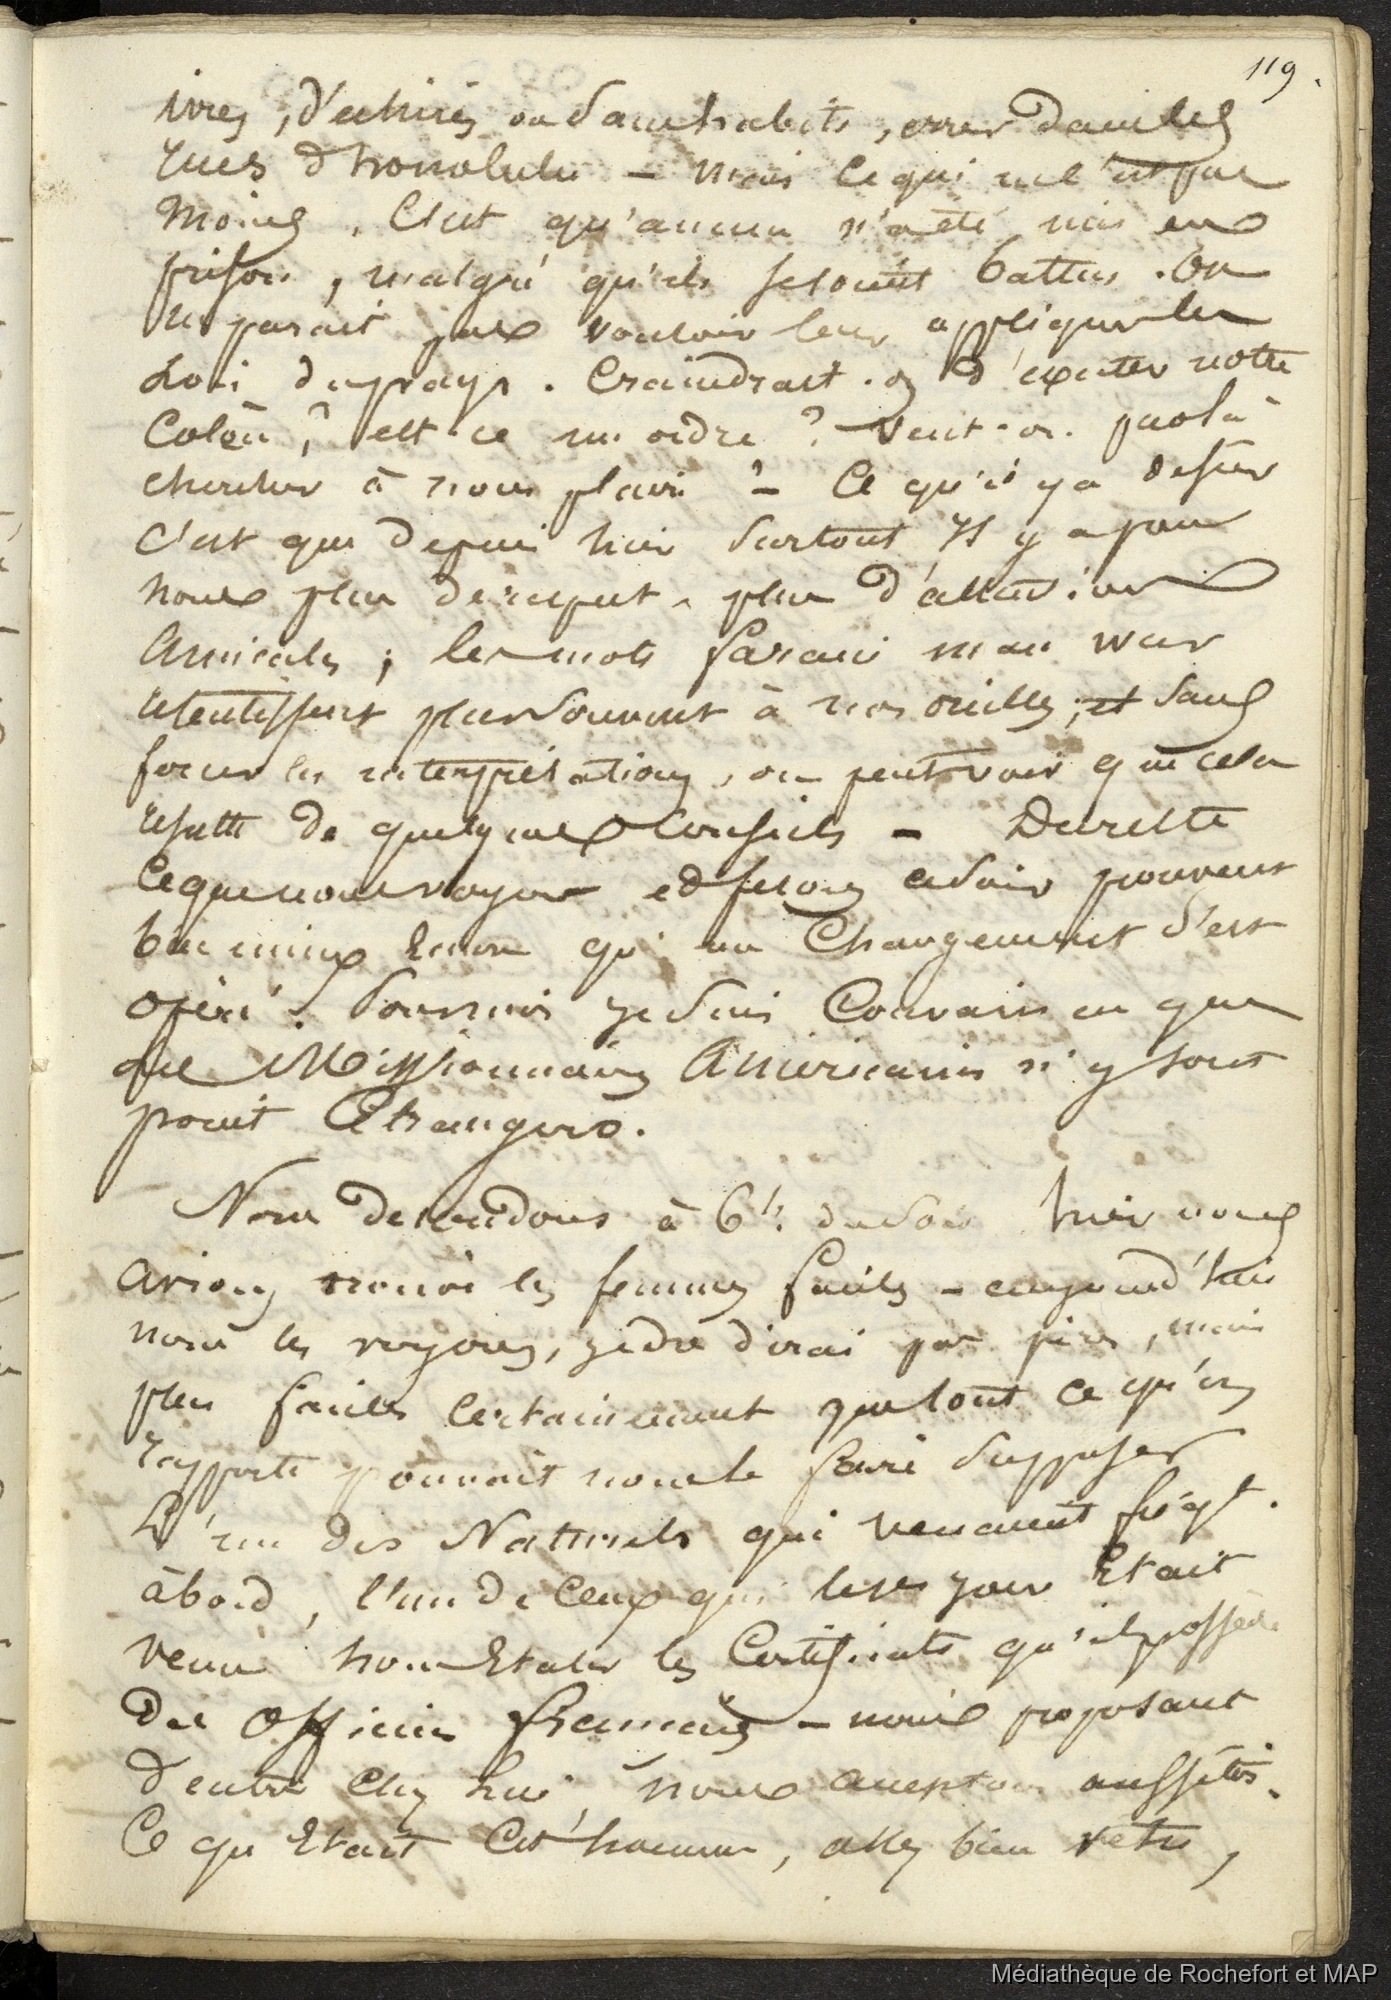 119.
ivres, déchirés ou sans habits, errer dans les
rues d'honolulu – mais ce qui ne l'est pas
moins, C'est qu'aucun n'a été mis en
prison, malgré qu'ils se soient battus. On
ne parait pas vouloir leur appliquer les
Lois du pays. Craindrait-on d'exciter notre
Colère ? est-ce un ordre ? veut-on par là
chercher à nous plaire ? – Ce qu'il y a de sûr
c'est que depuis hier surtout Il y a pour
nous plus de respect, plus d'attentions
Amicales ; les mots farani man war
retentissent plus souvent à nos oreilles, et sans
forcer les interprétations, on peut voir que cela
résulte de quelques Conseils – Du reste
Ce que nous voyons et ferons ce soir prouvent
bien mieux encore qu'un Changement s'est
opéré. Pour moi je suis Convaincu que
les Missionnaires Americains n'y sont
point Etrangers.
Nous descendons à 6h. du soir hier nous
avions trouvé les femmes faciles – aujourd'hui
nous les voyons, je ne dirai pas pires, mais
plus faciles certainement que tout ce qu'on
rapporte pouvait nous le faire supposer
L'un des Naturels qui venaient fréqt.
à bord, l'un de Ceux qui le 1er jour Etait
venu nous Etaler les Certificats qu'il possède
des Officiers français – nous proposant
d'entrer chez lui, nous acceptons aussitôt.
Ce qu'Etait Cet homme, allez bien vêtu,